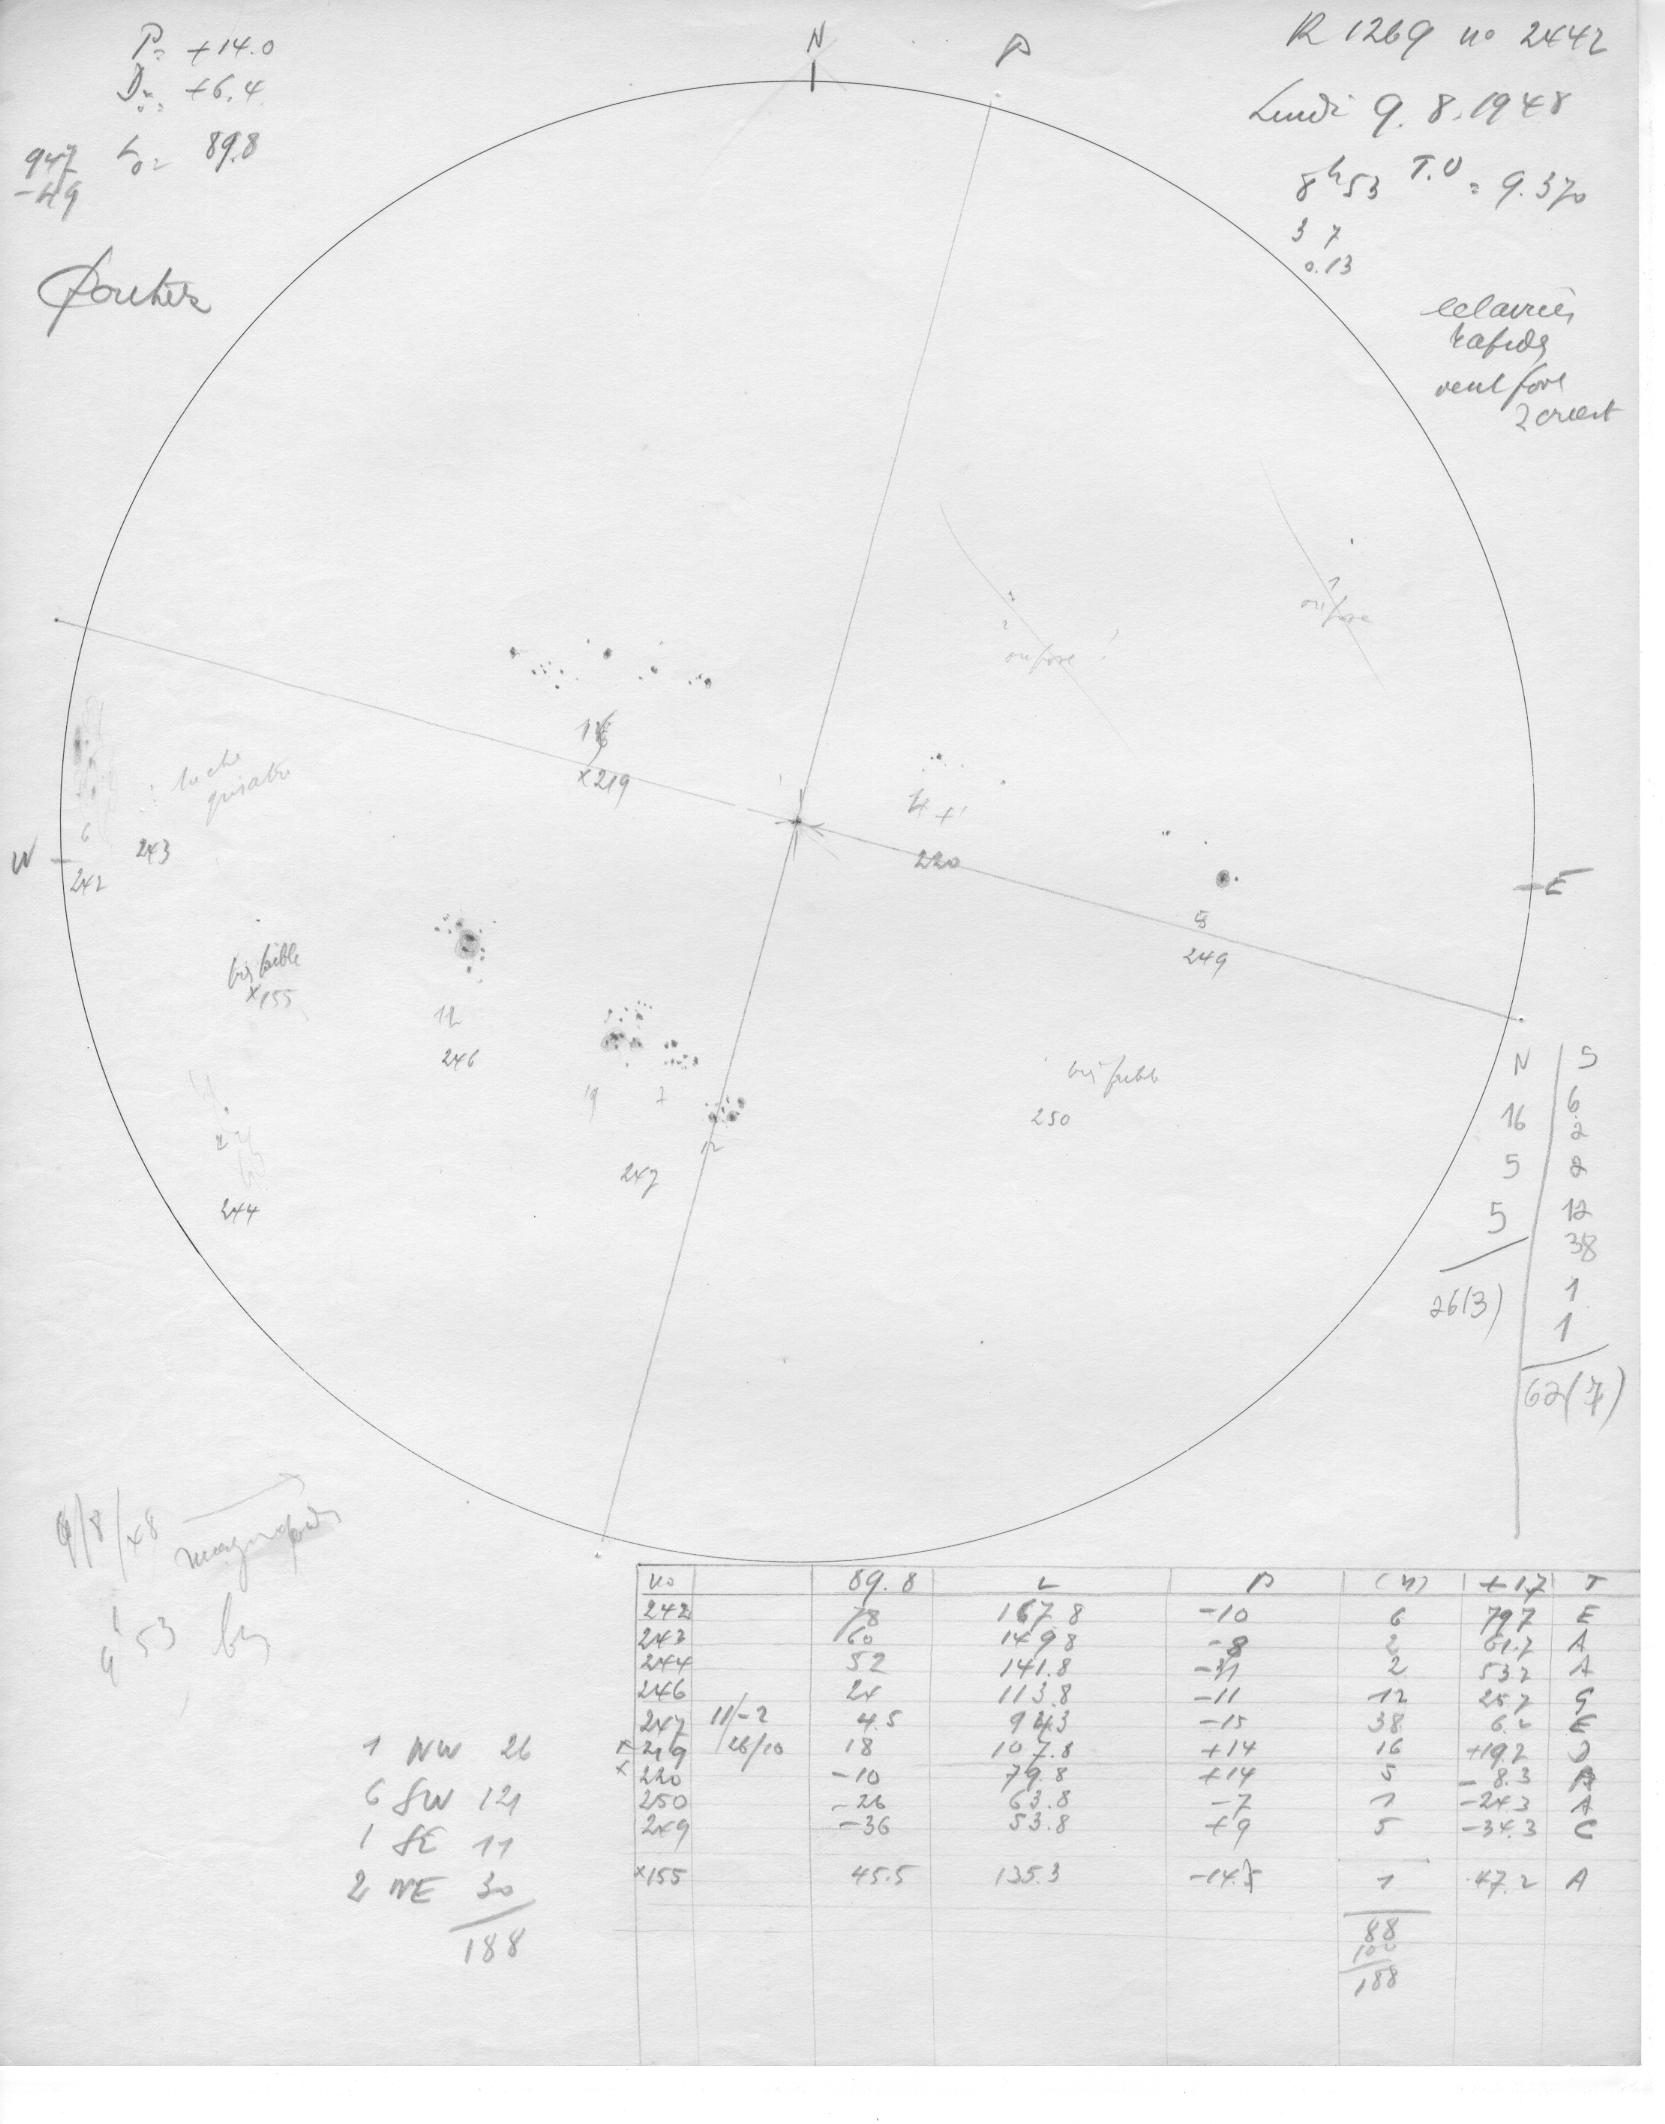 P= +14.0
D☉= +6.4
L₀= 89.8
947
-49
N
P
R 1269 no 2442
Lundi 9.8.1948
8h53 T.U = 9.370
3 7
0.13
eclaircies
rapides
vent fort
W
E
tache
6
242
243
x219
4 +1
220
5
249
très faible
x155
12
246
19
7
12
247
2
244
très faible
250
N | S
16 | 6
5 | 2
5 | 2
26(3) | 12
38
1
1
62(7)
9/8/48
53
no | | 89.8 | L | | (n) | +1.7 | T
242 | | 78 | 167.8 | -10 | 6 | 79.7 | E
243 | | 60 | 149.8 | -8 | 2 | 61.7 | A
244 | | 52 | 141.8 | | 2 | 53.7 | A
246 | | 24 | 113.8 | -11 | 12 | 25.7 | G
247 | 11/-2 | 4.5 | 94.3 | -15 | 38 | | E
x219 | 26/10 | 18 | 107.8 | +14 | 16 | +19.7 | D
x 220 | | -10 | 79.8 | +14 | 5 | -8.3 |
250 | | -26 | 63.8 | -7 | 1 | -24.3 | A
249 | | -36 | 53.8 | +9 | 5 | -34.3 | C
x155 | | 45.5 | 135.3 | -14.5 | 1 | 47.2 | A
88
100
188
1 NW 26
6 SW 121
1 SE 11
2 NE 30
188